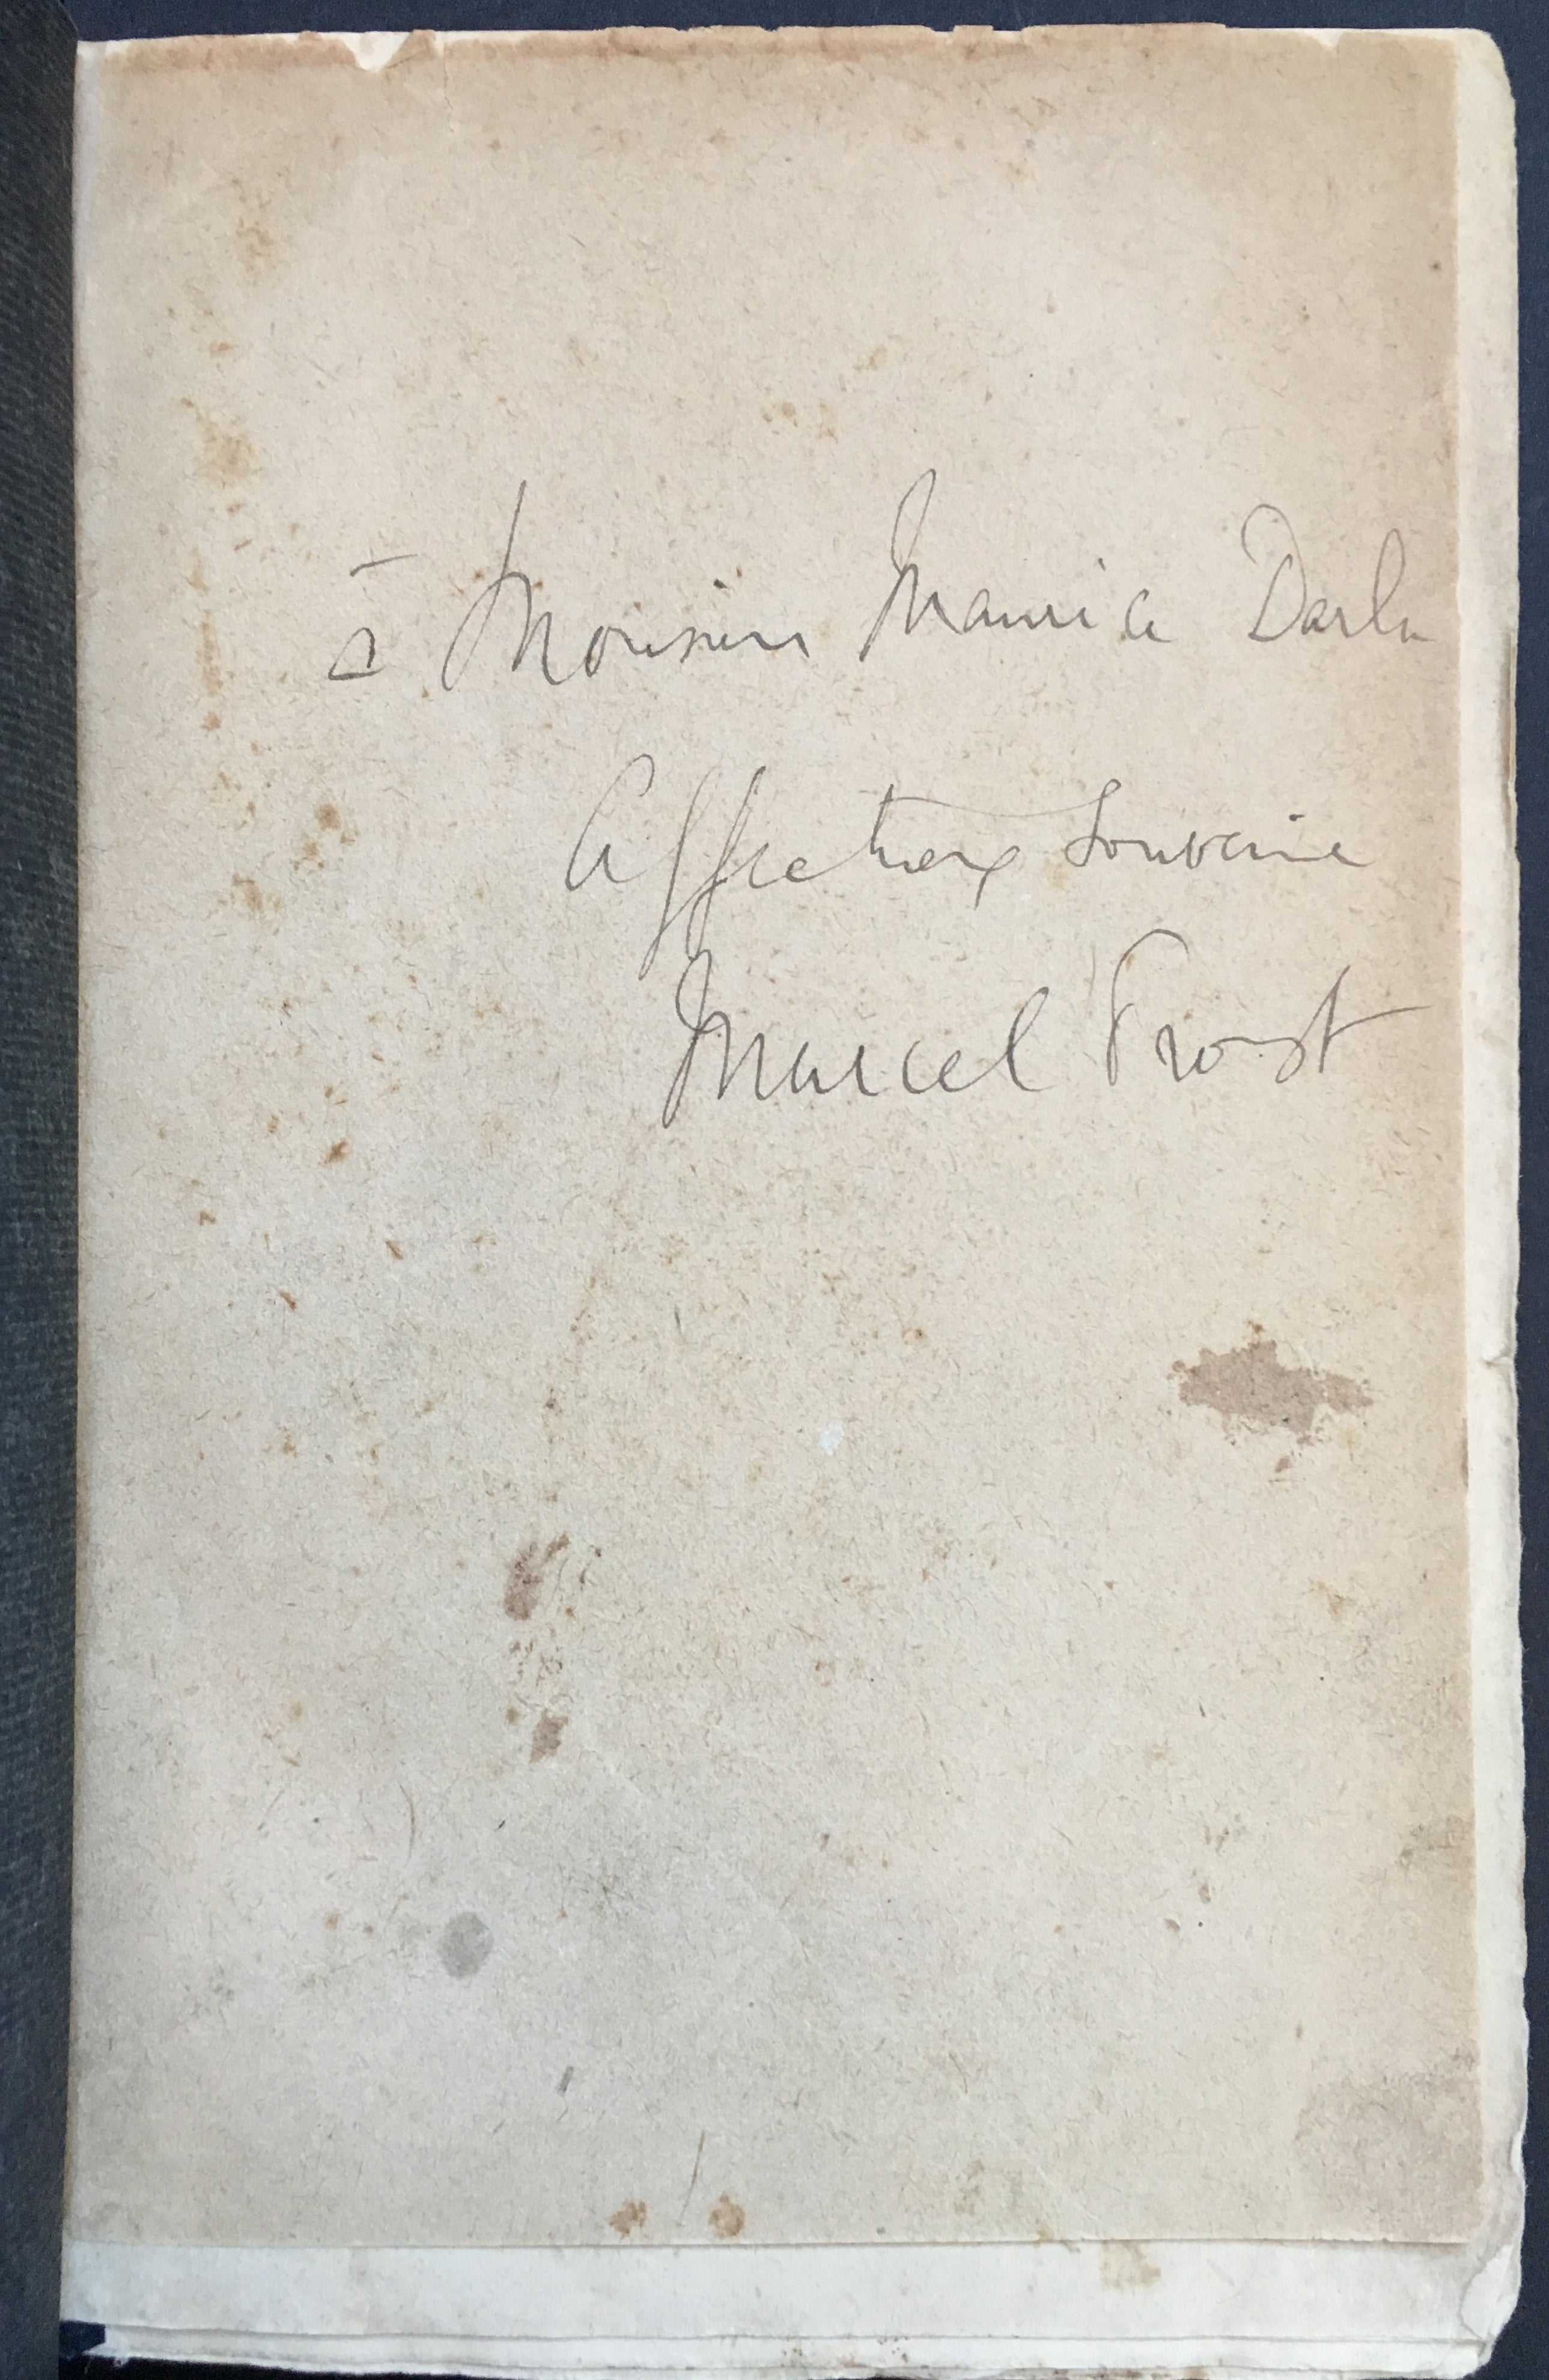 à Monsieur Maurice Darlu
Affectueux Souvenir
Marcel Proust